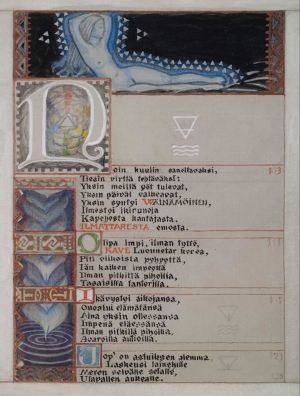 Noin kuulin saneltavaksi, 103
Tiesin virttä tehtäväksi:
Yksin meillä yöt tulevat,
Yksin päivät valkeavat,
Yksin syntyi WÄINÄMÖINEN,
Ilmestyi ikirunoja
Kapehesta kantajasta,
ILMATTARESTA emosta.
Olipa impi, ilman tyttö,
KAVE Luonnotar korea.
Piti viikoista pyhyyttä,
Iän kaiken impeyttä
Ilman pitkillä pihoilla,
Tasaisilla tanterilla.
Ikävystyi aikojansa,
Ouostui elämätänsä
Aina yksin ollessansa
Impenä eläessänsä
Ilman pitkillä pihoilla,
Avaroilla autioilla.
Jop' on astuiksen alemma. 123
Laskeusi lainehille
Meren selvälle selälle,
Ulapallen aukealle.